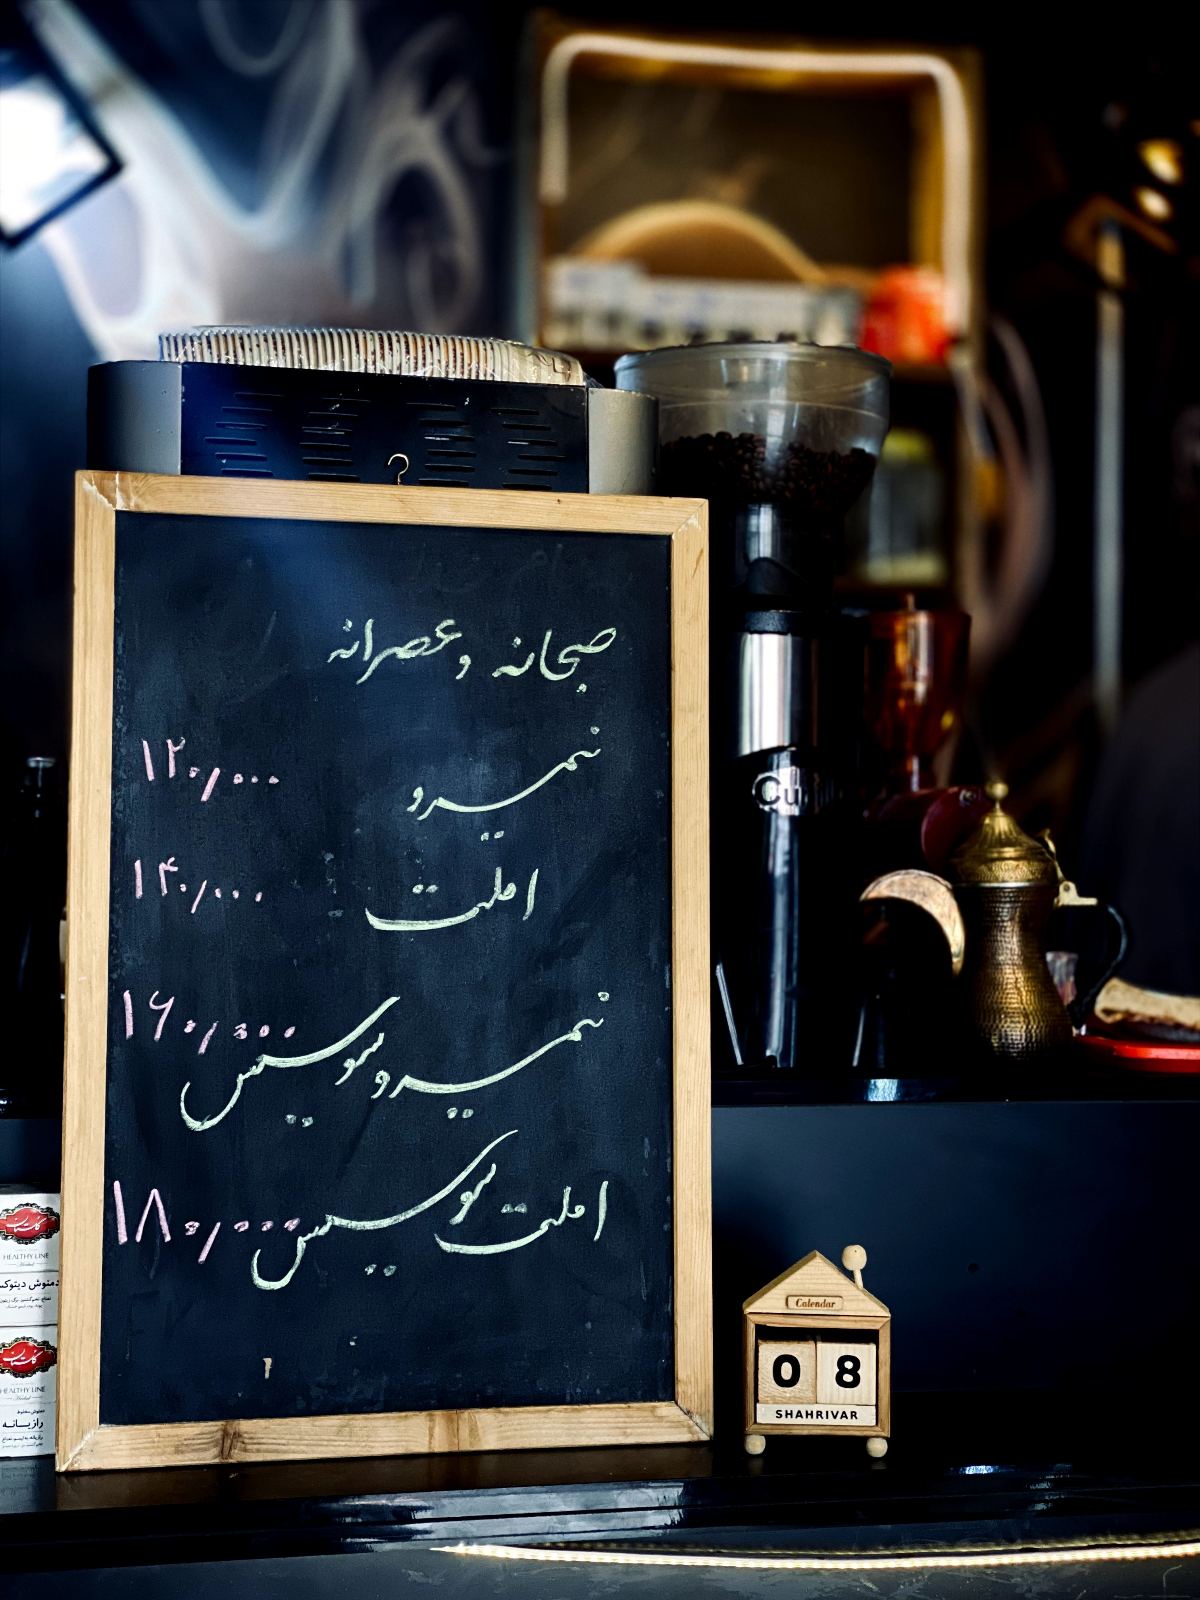 صبحانه و عصرانه
نیمرو ۱۲۰/۰۰۰
املت ۱۴۰/۰۰۰
نیمرو سوسیس ۱۶۰/۰۰۰
املت سوسیس ۱۸۰/۰۰۰
Cu
Calendar
08
SHAHRIVAR
گلستان
HEALTHY LINE
Herbal
دمنوش دیتوکس
گلستان
HEALTHY LINE
Herbal
دمنوش مخلوط
رازیانه